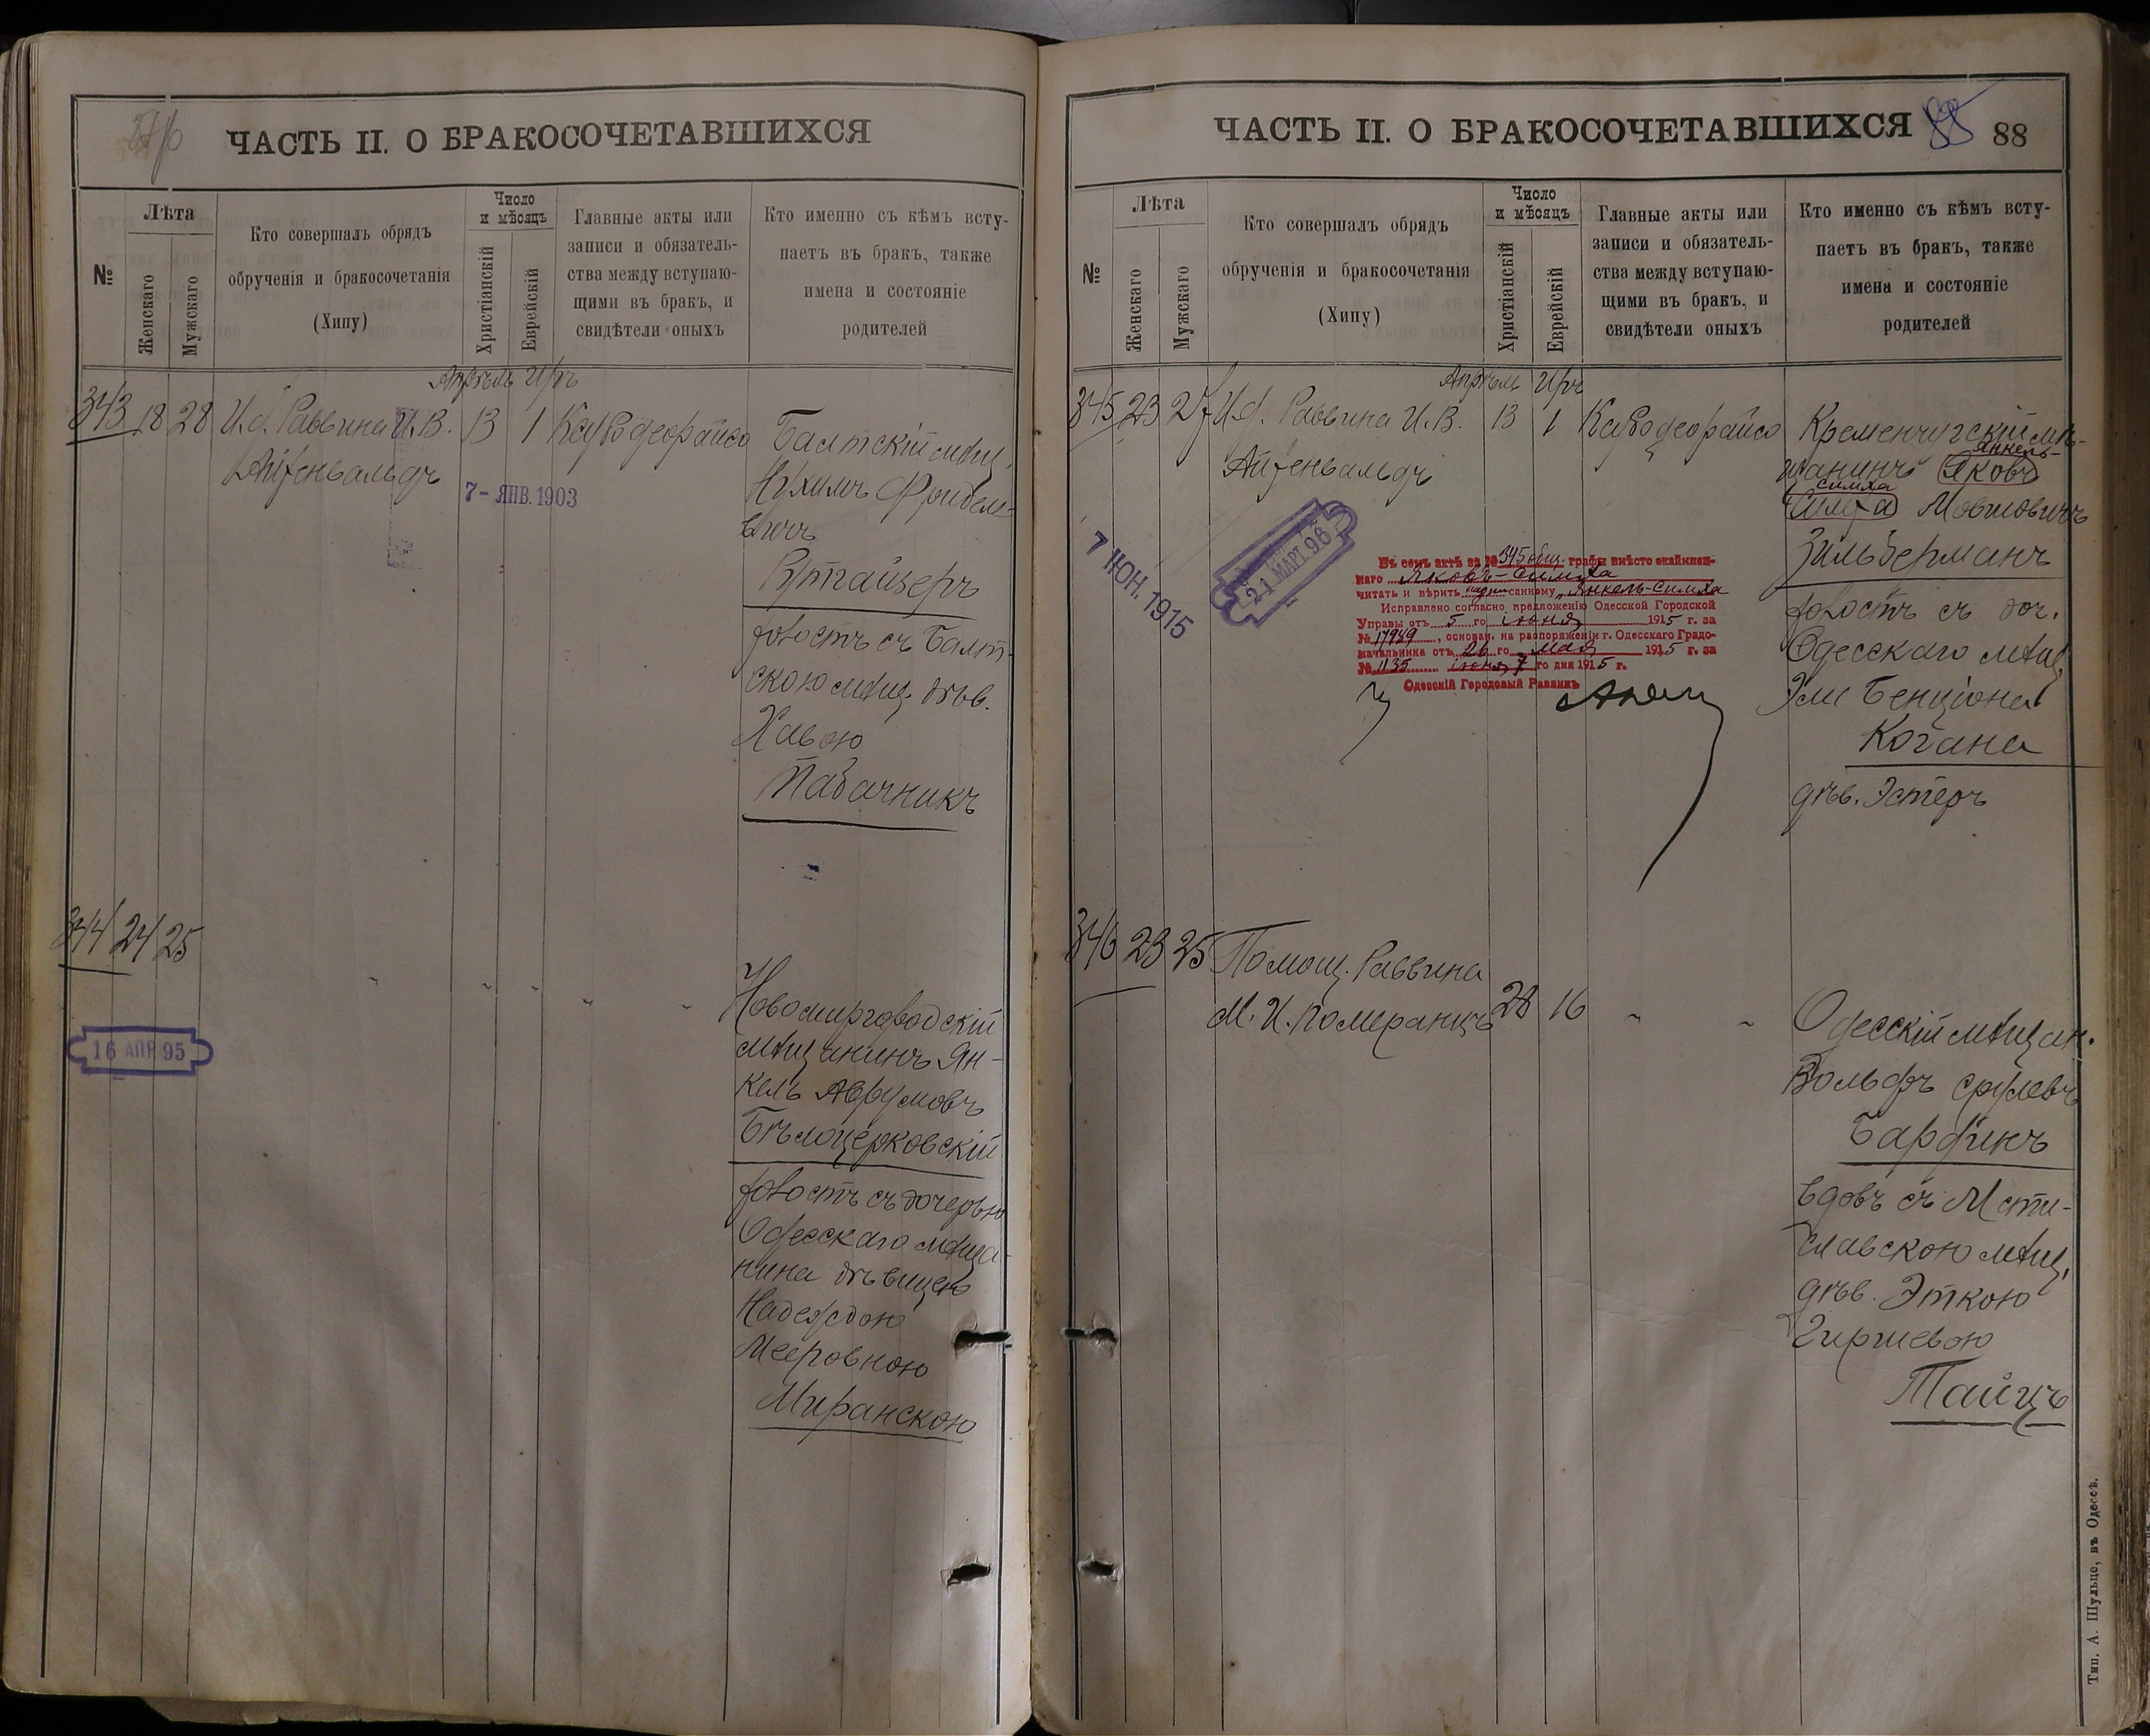 ЧАСТЬ II. О БРАКОСОЧЕТАВШИХСЯ
№
Лѣта
Женскаго
Мужскаго
Кто совершалъ обрядъ
обрученія и бракосочетанія
(Хипу)
Число
и мѣсяцъ
Христіанскій
Еврейскій
Главные акты или
записи и обязатель-
ства между вступаю-
щими въ бракъ, и
свидѣтели оныхъ
Кто именно съ кѣмъ всту-
паетъ въ бракъ, также
имена и состояніе
родителей
Апрѣль Іѵръ
343 18 28 И.д. Раввина И.В. 13 1
Айзенвальдъ
7 - ЯНВ. 1903
Балтскій мѣщ.
Нухимъ
вичъ
холостъ съ Балт-
скою мѣщ. дѣв.
Хавою
Табачникъ
344 24 25
16 АПР 95
Новомиргородскій
мѣщанинъ Ян-
кель Аврумовъ
Бѣлоцерковскій
холостъ съ дочерью
Одесскаго мѣща-
нина дѣвицею
Надеждою
Мееровною
Миранскою
ЧАСТЬ II. О БРАКОСОЧЕТАВШИХСЯ 88 88
№
Лѣта
Женскаго
Мужскаго
Кто совершалъ обрядъ
обрученія и бракосочетанія
(Хипу)
Число
и мѣсяцъ
Христіанскій
Еврейскій
Главные акты или
записи и обязатель-
ства между вступаю-
щими въ бракъ, и
свидѣтели оныхъ
Кто именно съ кѣмъ всту-
паетъ въ бракъ, также
имена и состояніе
родителей
Апрѣль
345 23 27 И.д. Раввина И.В. 13 1
Айзенвальдъ
7 ІЮН. 1915
21 МАРТ. 96
Въ семъ актѣ за № 345 общ. графы вмѣсто окаймлен-
наго Яковъ-Симха
читать и вѣрить надписанному „Янкель-Симха
Исправлено согласно предложенію Одесской Городской
Управы отъ 5 го іюня 1915 г. за
№ 17989, основан. на распоряженіи г. Одесскаго Градо-
начальника отъ 26 го мая 1915 г. за
№ 1135 іюня 7 го дня 1915 г.
Одесскій Городовый Раввинъ
Кременчугскій мѣ-
Янкель-
щанинъ Яковъ
Симха
Симха Мовшовичъ
Зильберманъ
холостъ съ доч.
Одесскаго мѣщ.
Эли Бенціона
Когана
дѣв. Эстеръ
346 23 25 Помощ. Раввина
М. И. Померанцъ 28 16
Одесскій мѣщан.
Вольфъ Срулевъ
вдовъ съ Мсти-
славскою мѣщ.
дѣв. Эткою
Гиршевою
Тайцъ
Тип. А. Шульце, въ Одессѣ.